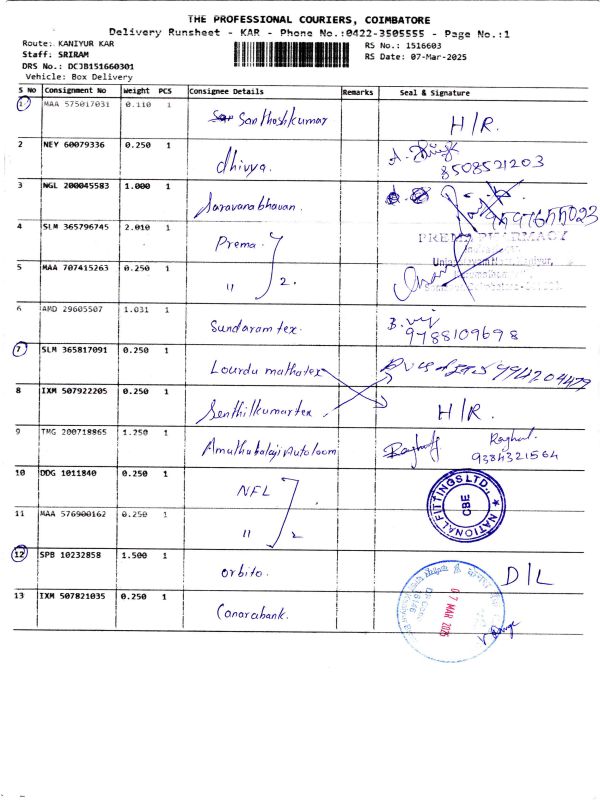 THE PROFESSIONAL COURIERS, COIMBATORE
Delivery Runsheet - KAR - Phone No.:0422-3505555 - Page No.:1
Route: KANIYUR KAR
RS No.: 1516603
Staff: SRIRAM
RS Date: 07-Mar-2025
DRS No.: DCJB151660301
Vehicle: Box Delivery
S No Consignment No Weight PCS Consignee Details Remarks Seal & Signature
1 MAA 575017031 0.110 1 Santhoshkumar H/R.
2 NEY 60079336 0.250 1 dhivya. 8508521203
3 NGL 200045583 1.000 1 Saravanabhavan.
4 SLM 365796745 2.010 1 Prema. PREMA PHARMACY
5 MAA 707415263 0.250 1 " 2.
6 AMD 29605507 1.031 1 Sundaramtex. B. vij 9788109698
7 SLM 365817091 0.250 1 Lourdu mathatex
8 IXM 507922205 0.250 1 Senthilkumartex H/R.
9 TMG 200718865 1.250 1 Amuthabalaji Autoloom Raghul. 9384321564
10 DDG 1011840 0.250 1 NFL NATIONAL FITTINGS LTD., CBE
11 MAA 576900162 0.250 1 " 2
12 SPB 10232858 1.500 1 orbito. D/L
13 IXM 507821035 0.250 1 Canarabank. 07 MAR 2025